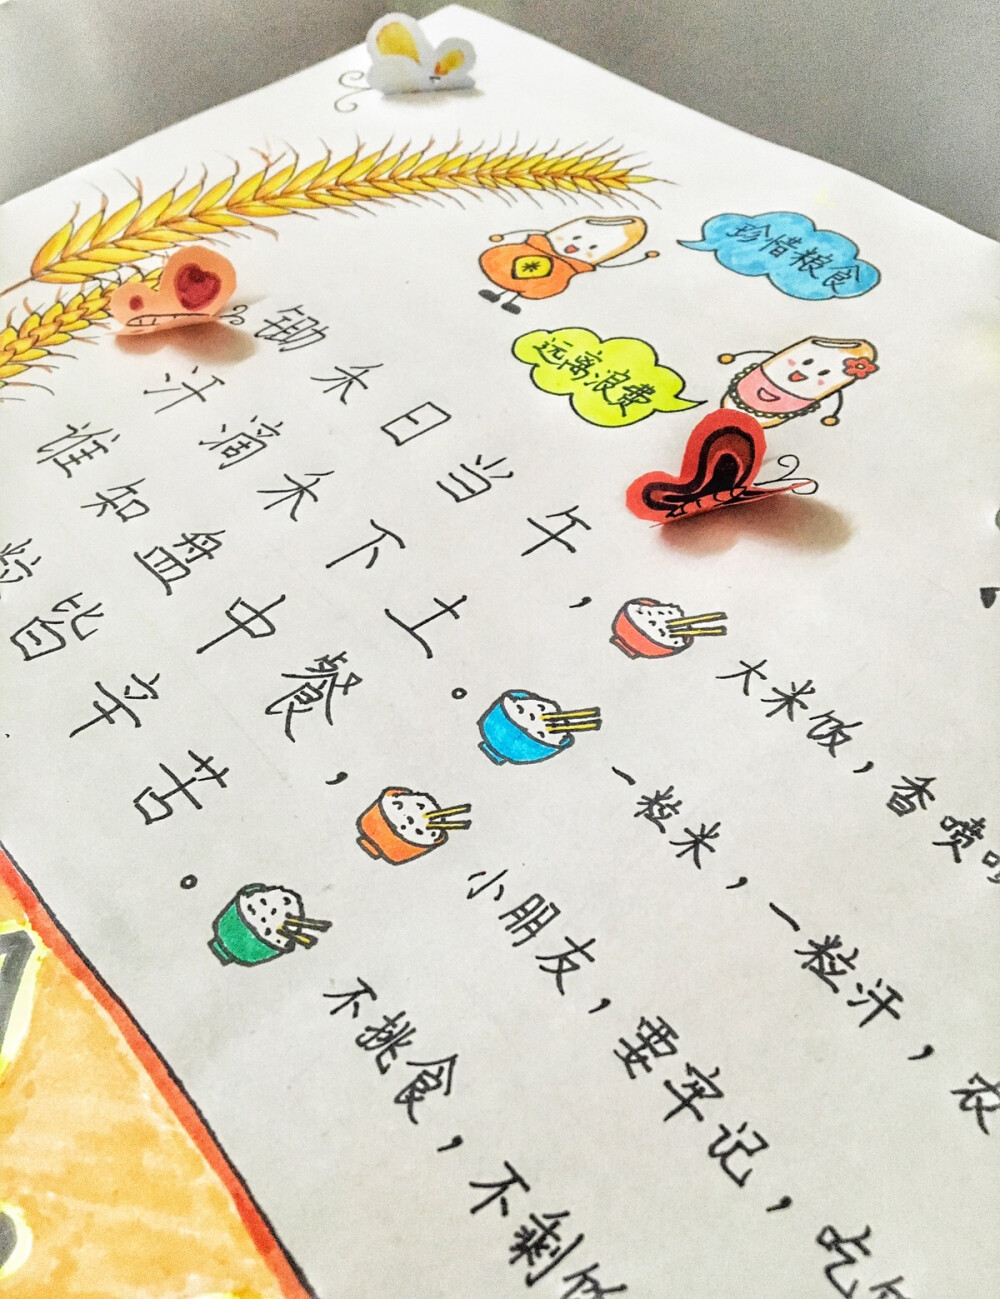 珍惜粮食
远离浪费
锄禾日当午，
汗滴禾下土。
谁知盘中餐，
粒皆辛苦。
大米饭，香喷喷
一粒米，一粒汗，农
小朋友，要牢记，吃饭
不挑食，不剩饭